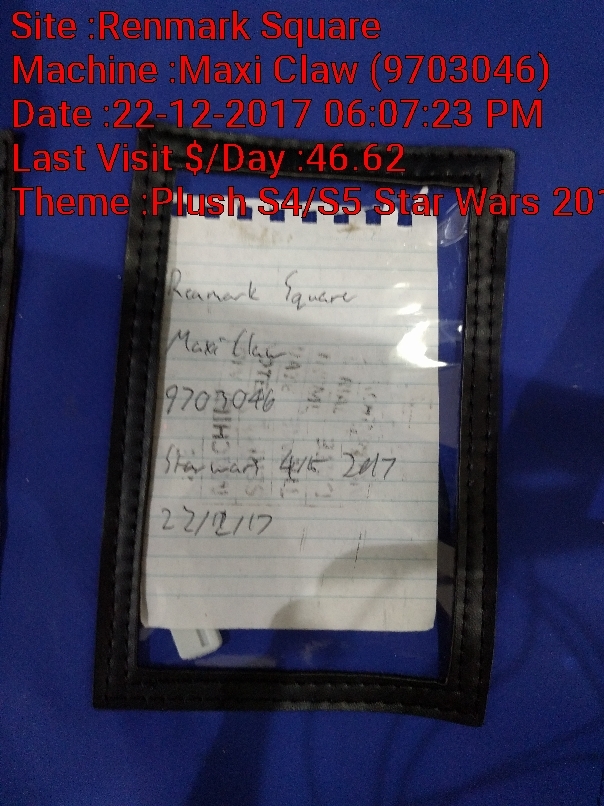 Site :Renmark Square
Machine :Maxi Claw (9703046)
Date :22-12-2017 06:07:23 PM
Last Visit $/Day :46.62
Theme :Plush S4/S5 Star Wars 201
Renmark Square
Maxi Claw
9703046
Starwars 4/5 2017
22/12/17